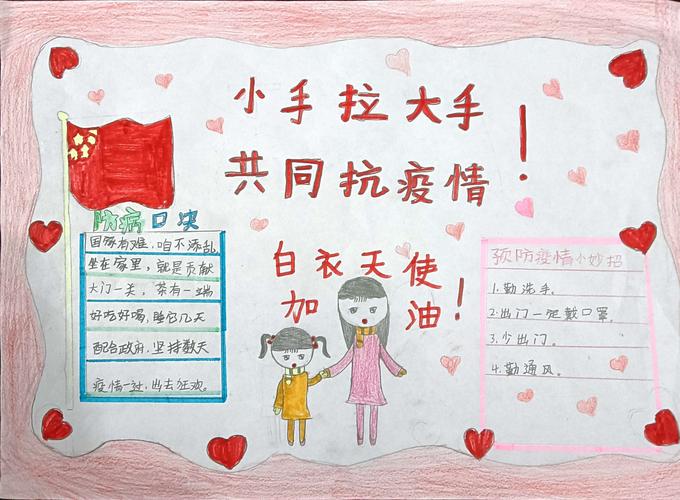 小手拉大手
共同抗疫情！
白衣天使
加油！
防病口决
国家有难，咱不添乱
坐在家里，就是贡献
大门一关，茶有一端
好吃好喝，睡它几天
配合政府，坚持数天
疫情一过，出去狂欢。
预防疫情小妙招
1.勤洗手。
2.出门一定戴口罩。
3.少出门。
4.勤通风。